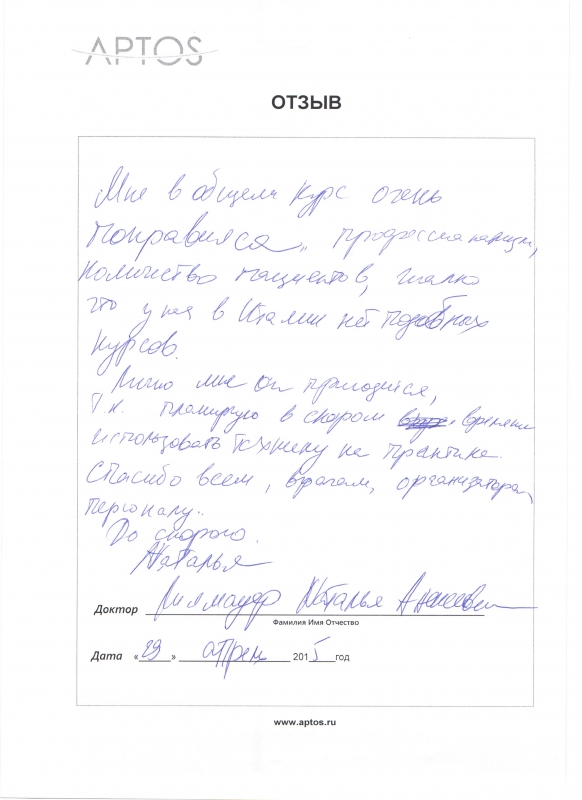 APTOS
ОТЗЫВ
Мне в общем курс очень
понравился,, профессионализм,
количество пациентов, жалко
что у нас в Италии нет подобных
курсов.
Лично мне он пригодится,
т.к. планирую в скором времени
использовать технику на практике.
Спасибо всем, врачам, организаторам,
персоналу..
До скорого.
Наталья
Доктор Наталья Алексеевна
Фамилия Имя Отчество
Дата «29» апрель 2015 год
www.aptos.ru